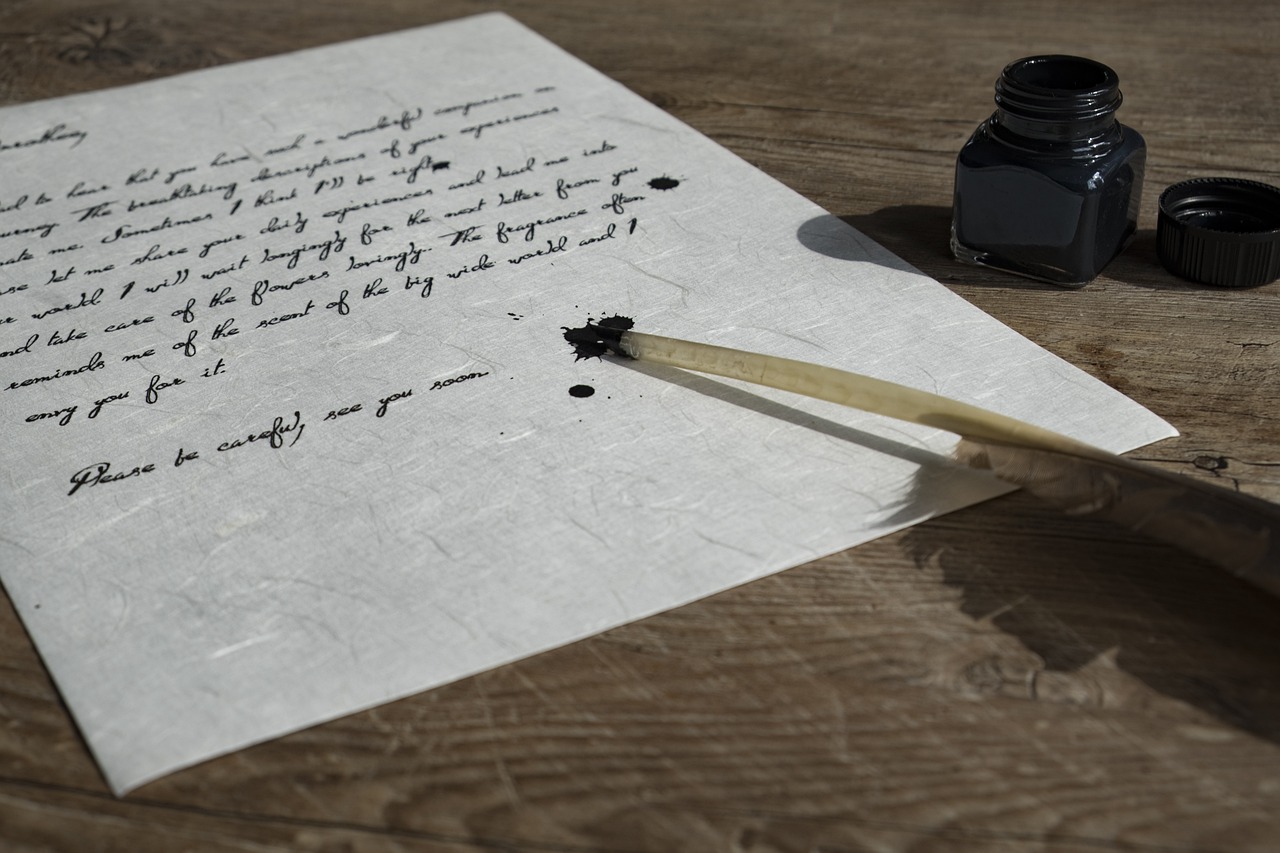 to hear that you have such a wonderful companion on
The breathtaking descriptions of your experiences
me. Sometimes I think I'll be right
let me share your daily experiences and lead me into
world I will wait longingly for the next letter from you
take care of the flowers lovingly.. The fragrance often
reminds me of the scent of the big wide world and I
envy you for it.
Please be careful, see you soon